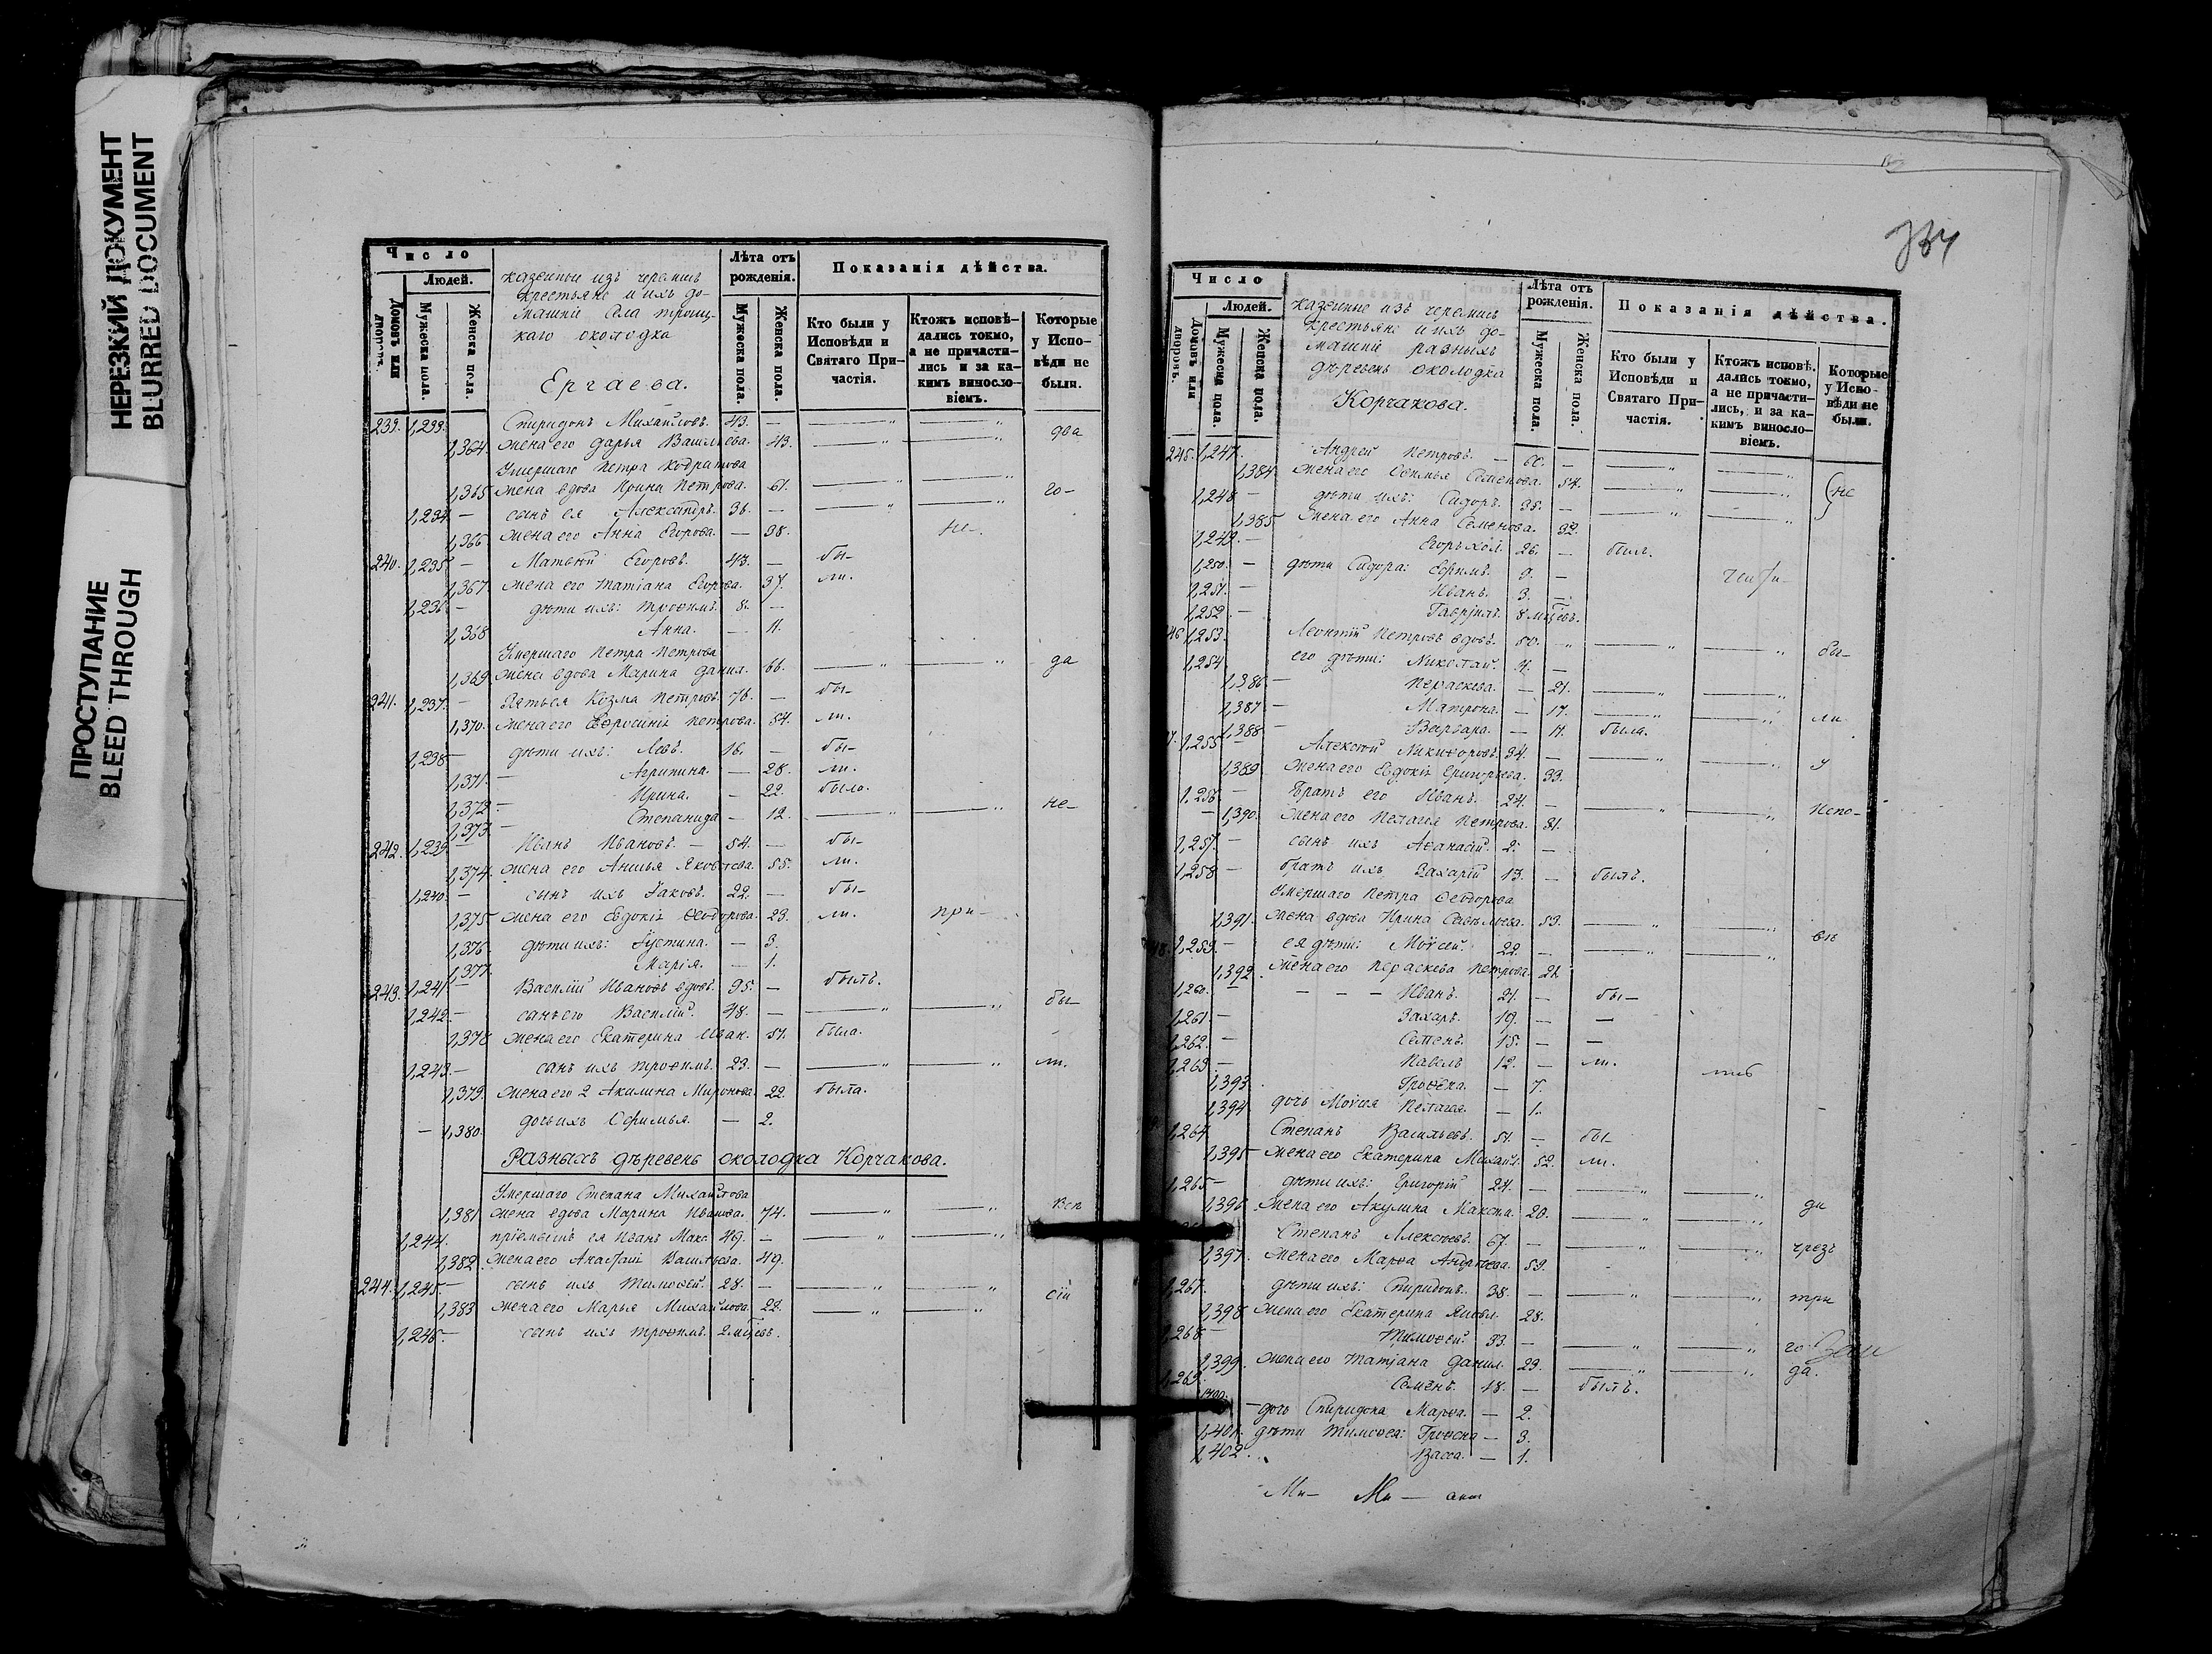 НЕРЕЗКИЙ ДОКУМЕНТ
BLURRED DOCUMENT
ПРОСТУПАНИЕ
BLEED THROUGH
Число
Людей.
Домовъ или дворовъ.
Мужеска пола.
Женска пола.
казенные изъ черемисъ
крестьяне и ихъ до-
машніе села троиц-
каго околодка
Ергаева.
Лѣта отъ рожденія.
Мужеска пола.
Женска пола.
Показанія дѣйства.
Кто были у Исповѣди и Святаго Причастія.
Ктожъ исповѣдались токмо, а не причастились и за какимъ винословіемъ.
Которые у Исповѣди не были.
239. 1,233. Спиридонъ Михайловъ. 43. — — „ — „
два
1,364. жена его Дарья Васильева. 43. — „ — „
Умершаго Петра Кодратова
1,365 жена вдова Ирина Петрова. 61. — „ — „ го-
1,234. — сынъ ея Александръ. 36. — — „ — „
1,366. жена его Анна Егорова. — 38. не-
240. 1,235 — Матвѣй Егоровъ. 43. — бы-
1,367 жена его Татіана Егорова. 37. ли.
1,236 — дѣти ихъ: Трофимъ. 8. —
1,368 Анна. — 11.
Умершаго Петра Петрова
1,369 жена вдова Марина Данил. 66. — „ — „ да
241. 1,237. — Зятья Козма Петровъ. 76. — бы-
1,370. жена его Евфросинія Петрова. 54. ли.
1,238 — дѣти ихъ: Левъ. 16. — бы-
1,371. — Агрипина. — 28. ли.
1,372 — Ирина. — 22. была.
1,373 — Степанида — 12. — „ — „ не-
242. 1,239 — Иванъ Ивановъ. — 54. — бы-
1,374. жена его Анисья Яковлева. 55. ли.
1,240. — сынъ ихъ Іаковъ. 22. — бы-
1,375 жена его Евдокія Ѳеодорова. 23. ли. при-
1,376 дѣти ихъ: Іустина. — 3.
1,377. Марія. — 1.
243. 1,241 — Василій Ивановъ вдовъ. 95. — былъ.
1,242. — сынъ его Василій. 48. — — „ — „ бы-
1,378 жена его Екатерина Иван. 51. была.
1,243. — сынъ ихъ Трофимъ. 23. — — „ — „ ли.
1,379. жена его 2 Акилина Миронова. 22. была.
— 1,380. дочь ихъ Ефимья. — 2.
Разныхъ деревень околодка Корчакова.
Умершаго Степана Михайлова
1,381 жена вдова Марина Иванова. 74. — „ — „ Всѣ
1,244. пріемышъ ея Иванъ Макс. 49. — — „ — „
1,382. жена его Анастасія Васильева. 49.
244. 1,245 — сынъ ихъ Тимофей. 28. — — „ — „ сіи
1,383 жена его Марья Михайлова. 28. — „ — „
1,246. — сынъ ихъ Трофимъ. 2 мѣсцевъ.
Число
Людей.
Домовъ или дворовъ.
Мужеска пола.
Женска пола.
казенные изъ черемисъ
крестьяне и ихъ до-
машніе разныхъ
деревень околодка
Корчакова.
Лѣта отъ рожденія.
Мужеска пола.
Женска пола.
Показанія дѣйства.
Кто были у Исповѣди и Святаго Причастія.
Ктожъ исповѣдались токмо, а не причастились, и за какимъ винословіемъ.
Которые у Исповѣди не были.
245. 1,247. Андрей Петровъ. — 60. — — „ — „
1,384. жена его Ефимья Семенова. 54. — „ — „ не
1,248 — дѣти ихъ: Сидоръ. 35. — — „ — „
1,385 жена его Анна Семенова. 32.
1,249. — Егоръ хол. 26. — былъ.
1,250. — дѣти Сидора: Ефимъ. 9. —
1,251. — Иванъ. 3. —
1,252. — Гавріилъ. 8 мѣцевъ.
46 1,253. Леонтій Петровъ вдовъ. 50. „ — „ — „ бы-
1,254. его дѣти: Николай. 4. —
1,386. — Пераскева. — 21. — „ — „
1,387. — Матрона. — 17. — „ — „ ли
1,388 — Варвара. — 11. была.
1,255 — Алексѣй Никифоровъ. 34. — — „ — „ у
1,389. жена его Евдокія Григорьева. 33.
1,256. — Братъ его Иванъ. 24. — — „ — „ Испо-
1,390. жена его Пелагея Петрова. 31.
1,257. — сынъ ихъ Аѳанасій. 2. —
1,258 — братъ ихъ Захарій 13. — былъ.
Умершаго Петра Ѳеодорова
1,391. жена вдова Ирина Савельева. 53. — „ — „
1,259. — ея дѣти: Мойсей. 22. — — „ — „
1,392. жена его Пераскева Петрова. 21.
1,260. — — — — Иванъ. 21. — бы-
1,261 — Захаръ. 19. — —
1,262. — Семенъ. 15. — —
1,263. — Павелъ 12. — ли.
1,393. Ѳекла. — 7.
1,394. дочь Мойсея Пелагея. — 1.
1,264. Степанъ Васильевъ. 51. — бы-
1,395 жена его Екатерина Михайл. 52. ли.
1,265 — дѣти ихъ: Григорій 24. — — „ — „
1,396 жена его Акулина Максим. 20. — „ — „ ди
Степанъ Алексѣевъ. 67. — — „ — „ чрезъ
1,397. жена его Марфа Андреева. 59.
1,267. дѣти ихъ: Спиридонъ. 38. — — „ — „ три
1,398 жена его Екатерина Яковл. 28.
1,268 — Тимофей. 33. — — „ — „ го-
1,399. жена его Татіана Данил. 29. — „ — „ да.
1,269. Семенъ. 18. — былъ.
1400. — дочь Спиридона Марфа. — 2.
1,401. дѣти Тимофея: — 3.
1,402. Васса. — 1.